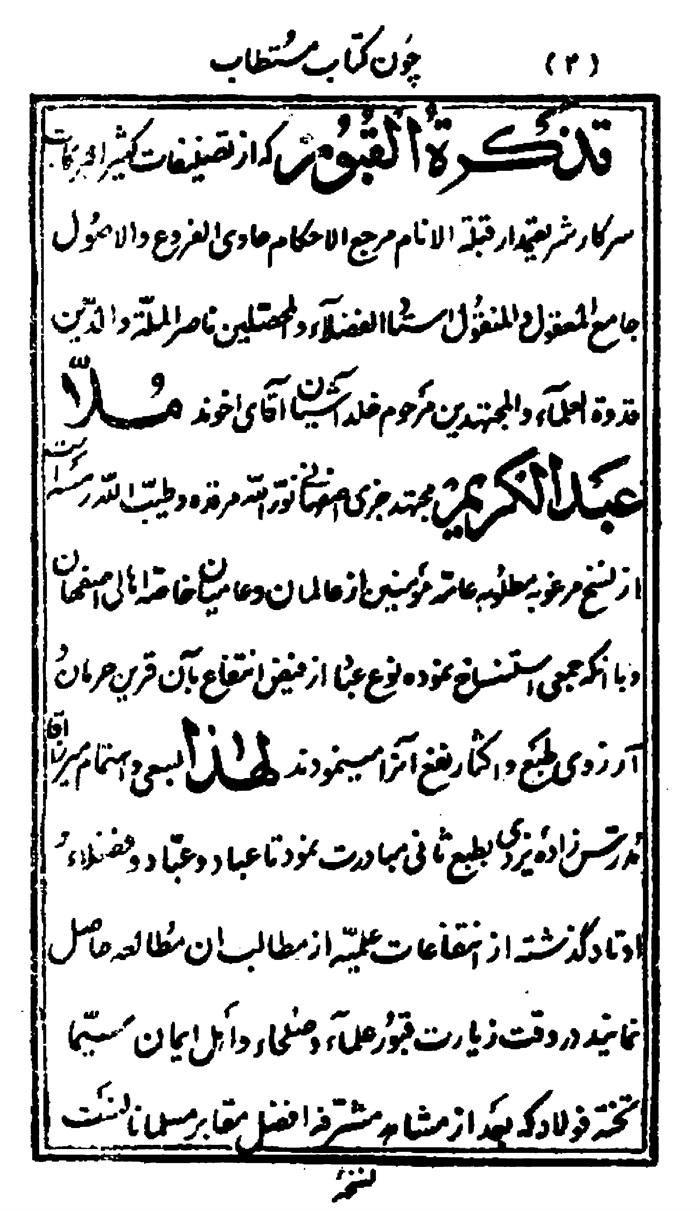 (۲) چون کتاب مستطاب
تذکرة القبور که از تصنیفات کثیر البرکات
سرکار شریعتمدار قبلة الانام مرجع الاحکام حاوی الفروع والاصول
جامع المعقول والمنقول استاد الفضلاء والمحصلین ناصر الملة والدین
قدوة العلماء والمجتهدین مرحوم خلد آشیان آقای آخوند ملا
عبدالکریم مجتهد جزی اصفهانی نورالله مرقده وطیب الله رمسه است
از نسخ مرغوبه مطلوبه عامه مؤمنین از عالمان و عامیان خاصه اهالی اصفهان
و با آنکه جمعی استنساخ نموده نوع عباد از فیض انتفاع بآن قرین حرمان
آرزوی طبع و اکثار نفع آنرا مینمودند لهذا بسعی و اهتمام میرزا آقا
مدرس زاده یزدی بطبع ثانی مبادرت نمود تا عباد و عبّاد و فضلاء
اوتاد گذشته از انتفاعات علمیه از مطالب ان مطالعه حاصل
نمایند در وقت زیارت قبور علماء و صلحاء و اهل ایمان سیّما
تخته فولاد که بعد از مشاهد مشرفه افضل مقابر مسلمانانست
نسخهٔ